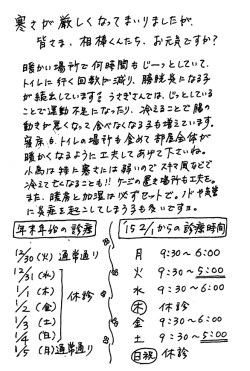 寒さが厳しくなってまいりましたが、
皆さま、相棒くんたち、お元気ですか?
暖かい場所で何時間もじーっとしていて、
トイレに行く回数が減り、膀胱炎になる子
が続出しています。うさぎさんでは、じっとしている
ことで運動不足になったり、冷えることで腸の
動きが悪くなって食べなくなる子も増えています。
寝床もトイレの場所も含めて部屋全体が
暖かくなるように工夫してあげて下さいね。
小鳥は特に寒さには弱いのでスキマ風などで
冷えて亡くなることも!! ケージの置き場所も工夫を。
また、暖房と加湿は必ずセットで。ノドや気管
に炎症を起こしてしまう子も多いですョ。
年末年始の診療
12/30(火) 通常通り
12/31(水)
1/1(木)
1/2(金)
1/3(土)
1/4(日)
休診
1/5(月)通常通り
'15 2/1からの診療時間
月 9:30〜6:00
火 9:30〜5:00
水 9:30〜6:00
木 休診
金 9:30〜6:00
土 9:30〜5:00
日祝 休診